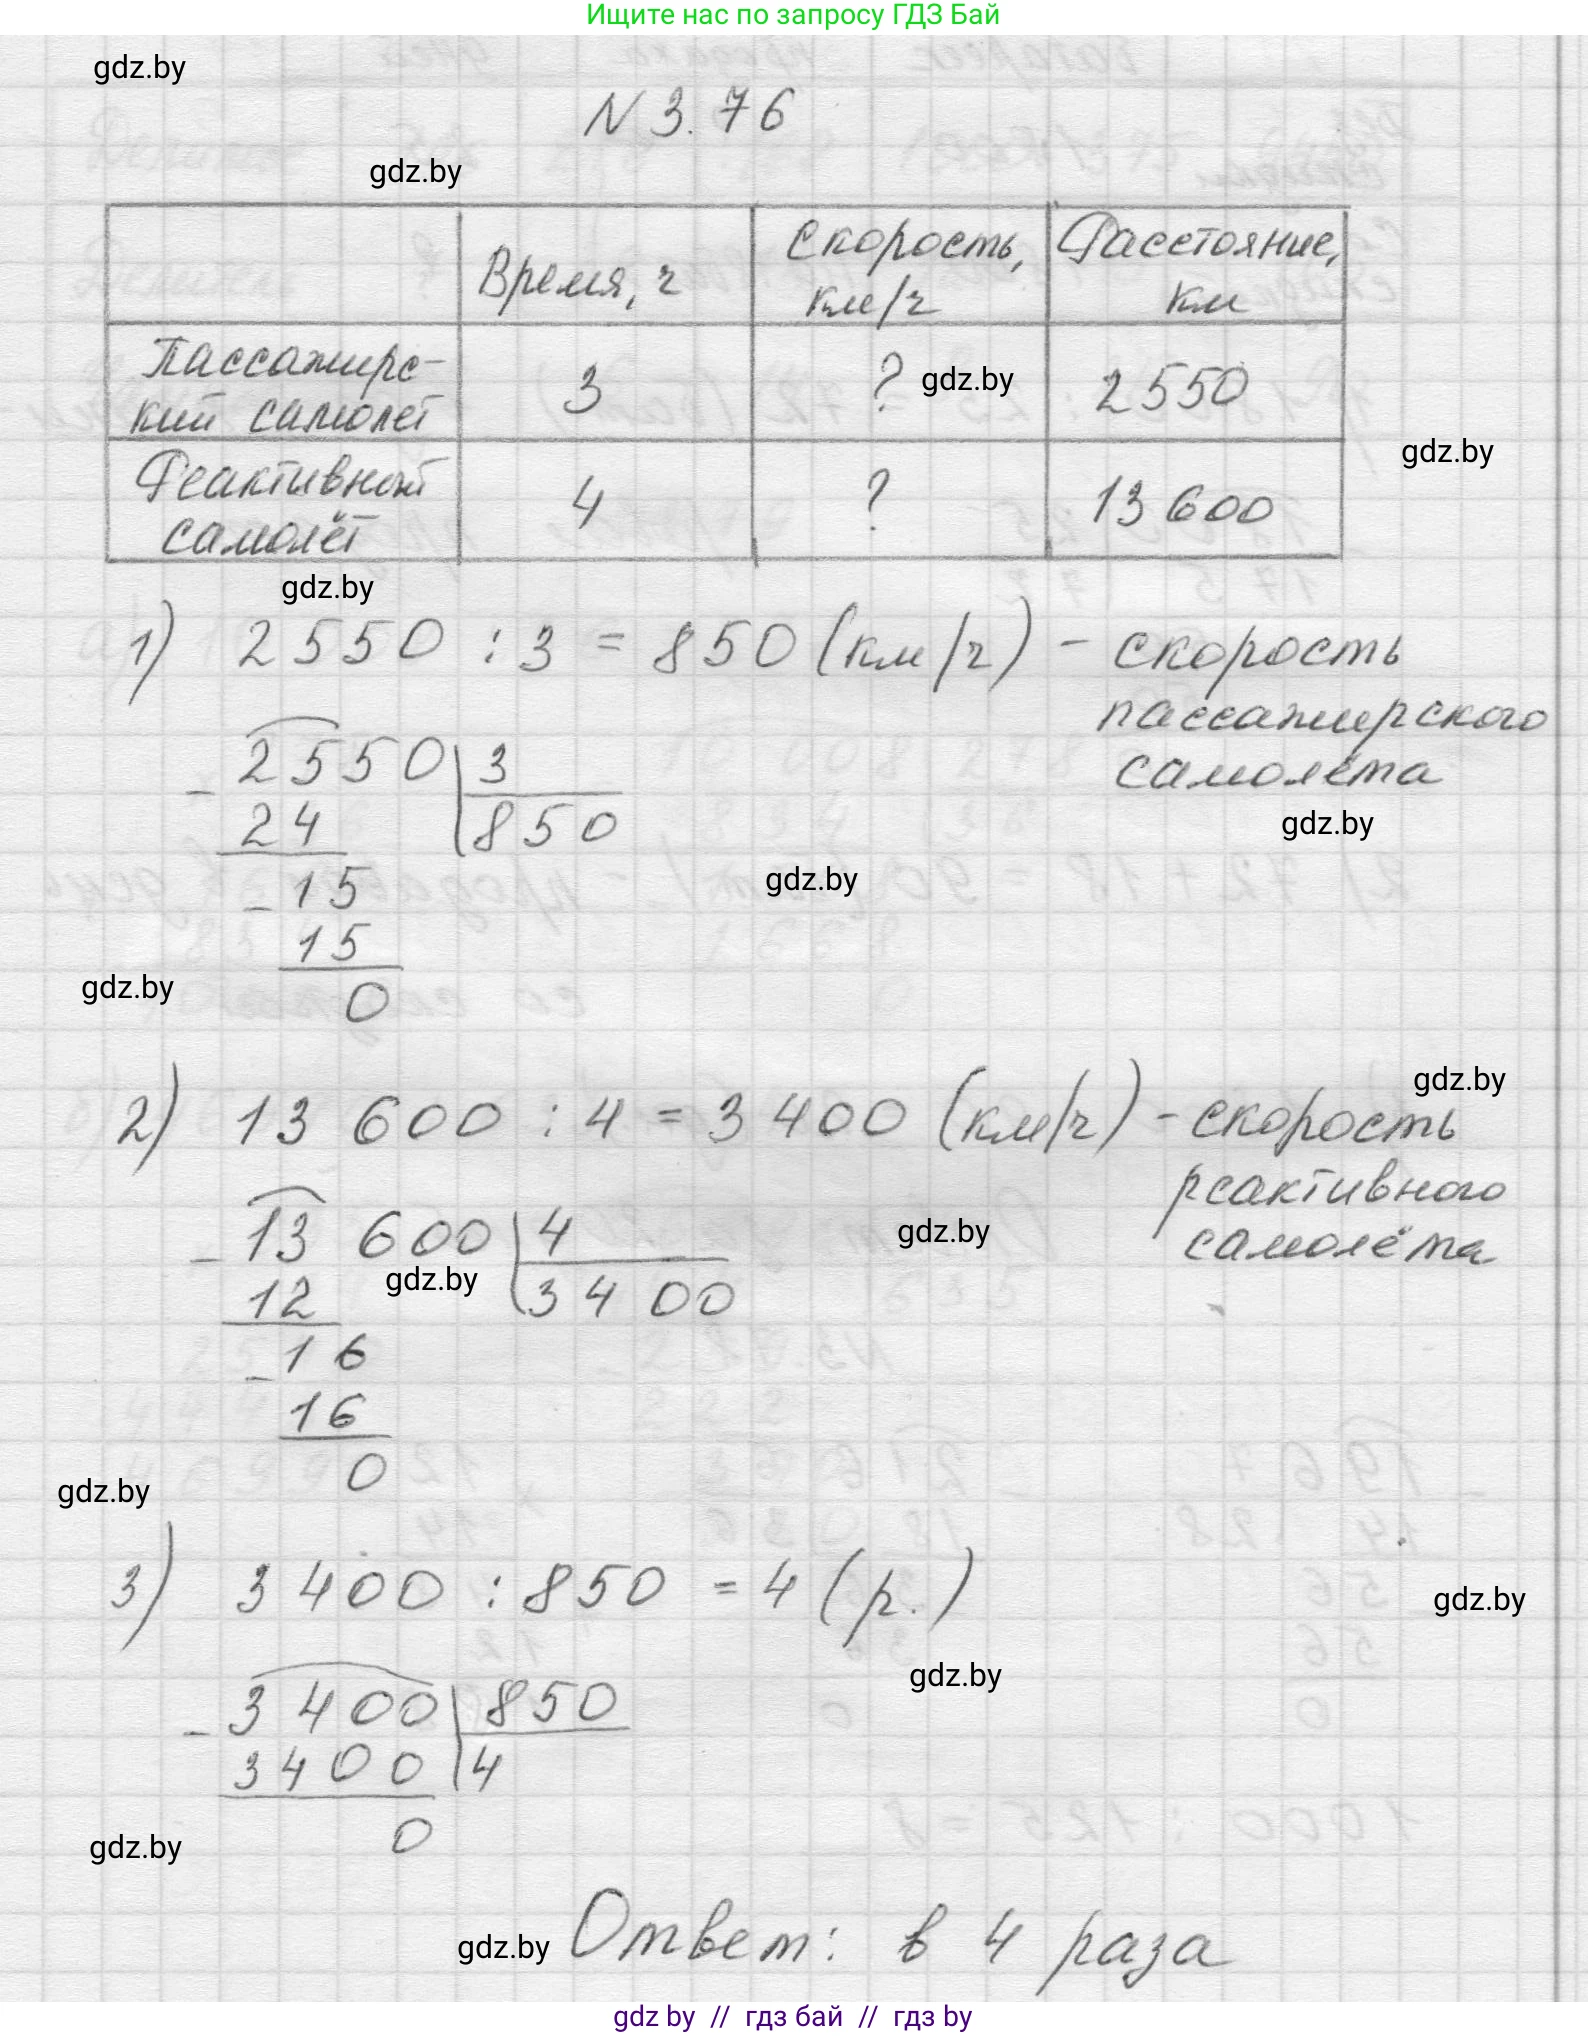 Ищите нас по запросу ГДЗ Бай
gdz.by
N 3.76
gdz.by
Время, ч
Скорость, км/ч
Расстояние, км
Пассажирс-
кий самолёт
3
?
gdz.by
2550
gdz.by
Реактивный
самолёт
4
?
13 600
gdz.by
1) 2550 : 3 = 850 (км/ч) - скорость
пассажирского
самолёта
- 2550 | 3
24 850
gdz.by
- 15
gdz.by
15
gdz.by
0
gdz.by
2) 13 600 : 4 = 3 400 (км/ч) - скорость
реактивного
самолёта
- 13 600 | 4
gdz.by
gdz.by
12 3 400
- 16
16
0
gdz.by
3) 3 400 : 850 = 4 (р.)
gdz.by
gdz.by
- 3 400 | 850
3400 4
0
gdz.by
gdz.by
Ответ: в 4 раза
gdz by // гдз бай // гдз by